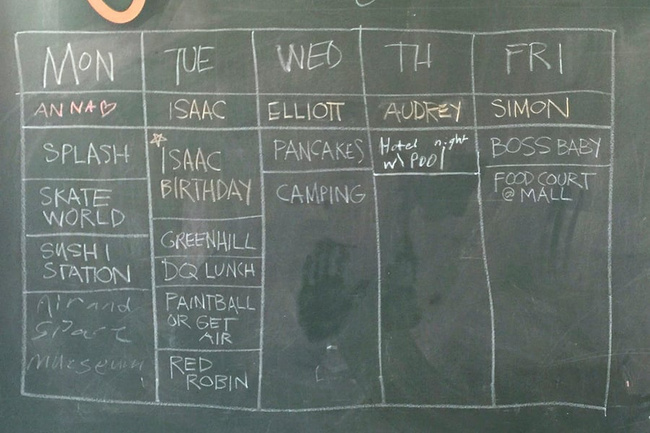 MON TUE WED TH FRI
ANNA♡ ISAAC ELLIOTT AUDREY SIMON
SPLASH
SKATE
WORLD
SUSHI
STATION
Air and
Space
Museum
ISAAC
BIRTHDAY
GREENHILL
DQ LUNCH
PAINTBALL
OR GET
AIR
RED
ROBIN
PANCAKES
CAMPING
Hotel night
w\ POOl
BOSS BABY
FOOD COURT
@ MALL